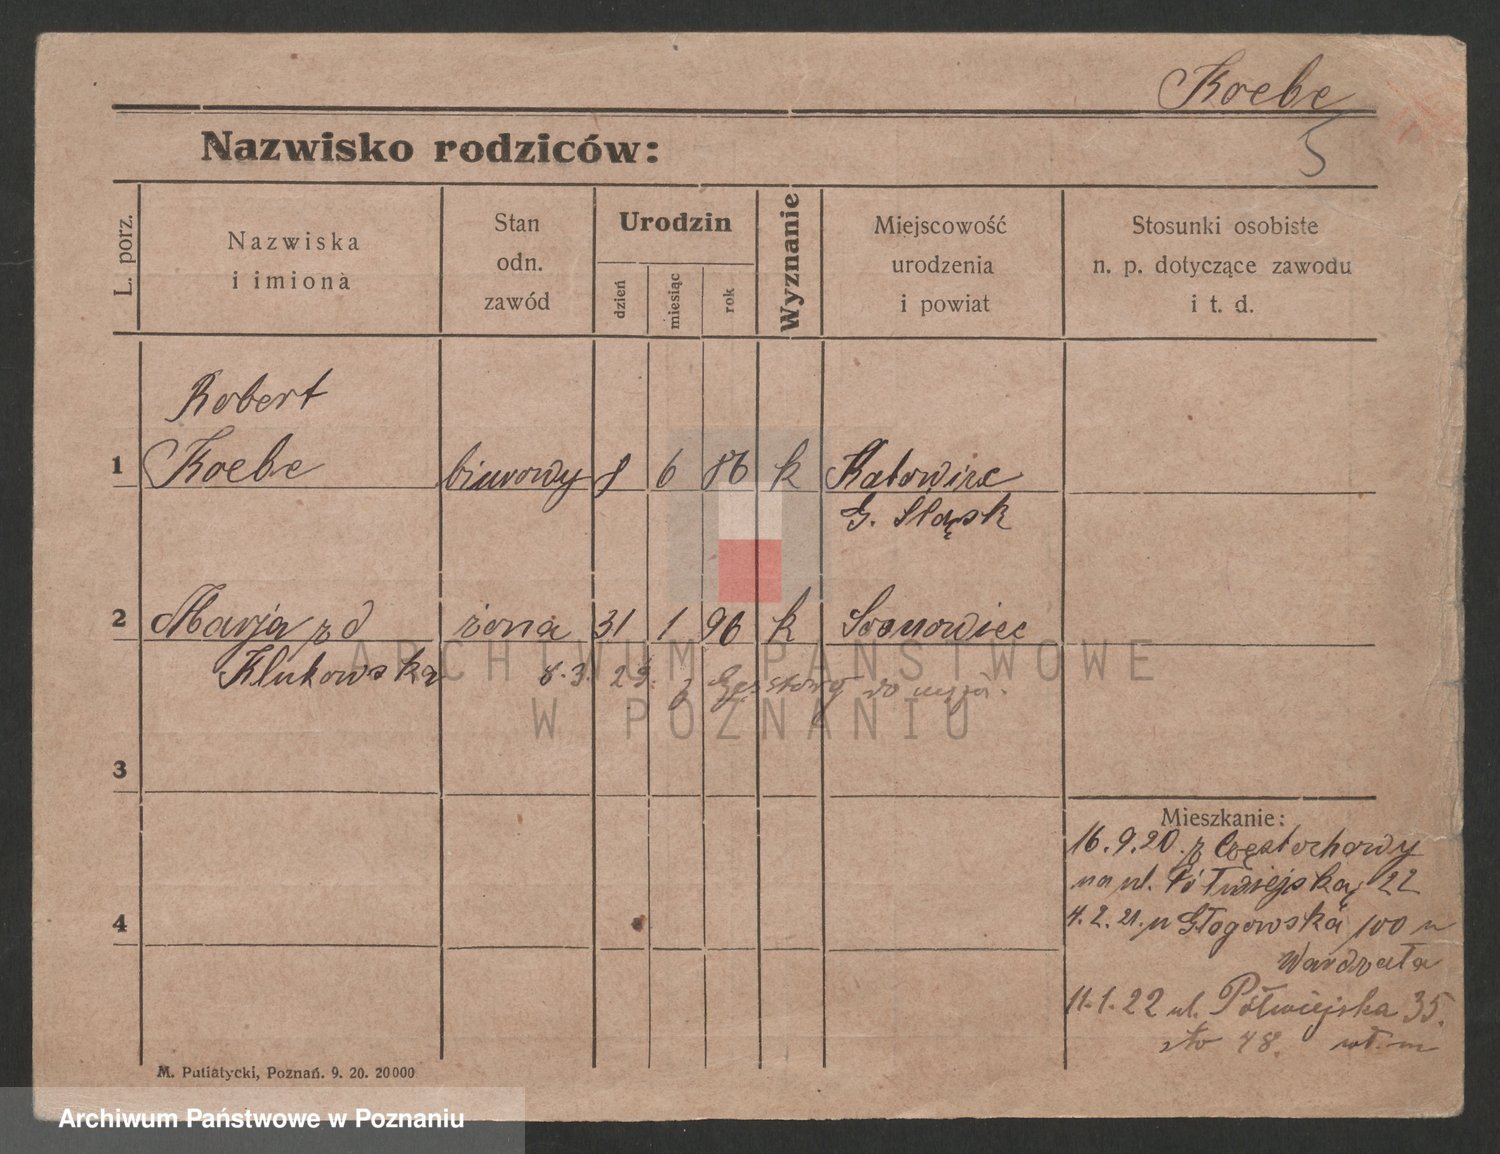 Koebe
5
Nazwisko rodziców:
L. porz.
Nazwiska
i imiona
Stan
odn.
zawód
Urodzin
dzień
miesiąc
rok
Wyznanie
Miejscowość
urodzenia
i powiat
Stosunki osobiste
n. p. dotyczące zawodu
i t. d.
Robert
1 Koebe biurowy 8 6 86 k Katowice
G. Sląsk
2 Marja z d żona 31 1 96 k Sosnowiec
Klukowska 8.3. 29. z
ARCHIWUM PAŃSTWOWE
W POZNANIU
3
Mieszkanie:
16.9.20. z Częstochowy
na ul. Półwiejską 22
4.2.21. Głogowska 100 u
4
11.1.22 ul. Półwiejska 35.
48.
M. Putiatycki, Poznań. 9. 20. 20000
Archiwum Państwowe w Poznaniu